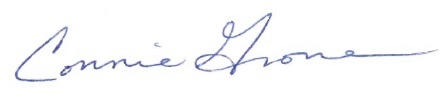 Connie Grone